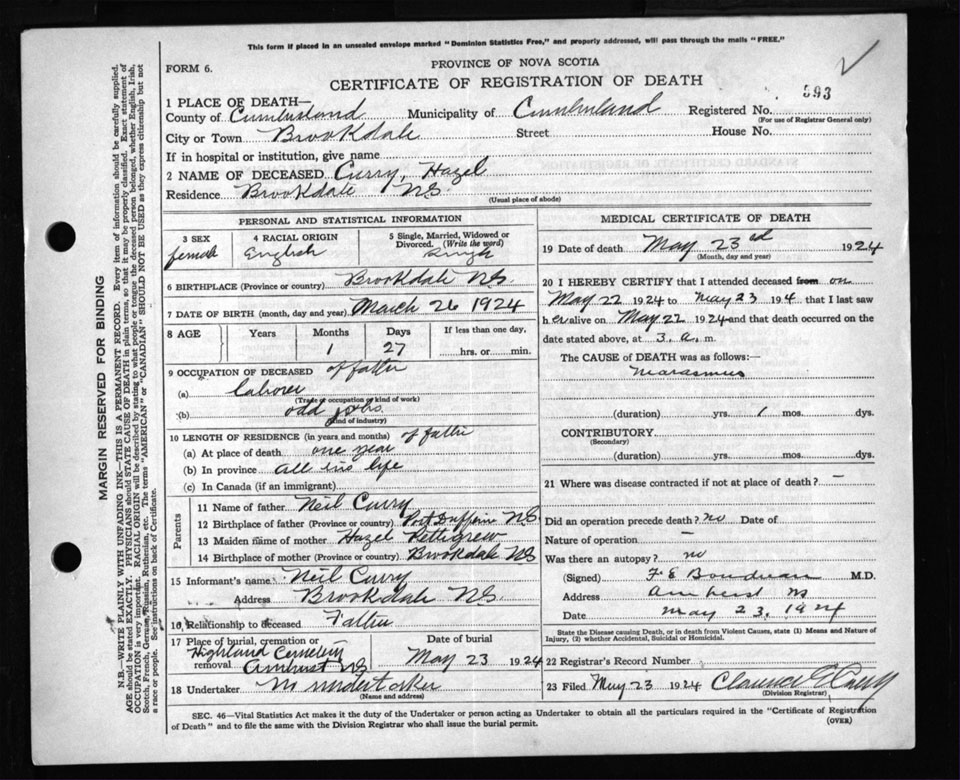 This form if placed in an unsealed envelope marked "Dominion Statistics Free," and properly addressed, will pass through the mails "FREE."
FORM 6.
PROVINCE OF NOVA SCOTIA
CERTIFICATE OF REGISTRATION OF DEATH
893
1 PLACE OF DEATH—
County of Cumberland Municipality of Cumberland Registered No.
(For use of Registrar General only)
City or Town Brookdale Street House No.
If in hospital or institution, give name
2 NAME OF DECEASED Curry, Hazel
Residence Brookdale N.S.
(Usual place of abode)
MARGIN RESERVED FOR BINDING
N.B.—WRITE PLAINLY WITH UNFADING INK—THIS IS A PERMANENT RECORD. Every item of information should be carefully supplied.
AGE should be stated EXACTLY. PHYSICIANS should STATE CAUSE OF DEATH in plain terms, so that it may be properly classified. Exact statement of
OCCUPATION is very important. RACIAL ORIGIN will be described by stating to what people or tongue the deceased person belonged, whether English, Irish,
Scotch, French, German, Russian, Ruthenian, etc. The terms "AMERICAN" or "CANADIAN" SHOULD NOT BE USED as they express citizenship but not
a race or people. See instructions on back of Certificate.
PERSONAL AND STATISTICAL INFORMATION
3 SEX
female
4 RACIAL ORIGIN
English
5 Single, Married, Widowed or
Divorced. (Write the word)
Single
6 BIRTHPLACE (Province or country) Brookdale N.S.
7 DATE OF BIRTH (month, day and year) March 26 1924
8 AGE Years Months Days If less than one day,
1 27 hrs. or min.
9 OCCUPATION OF DECEASED of father
(a) Laborer
(Trade, occupation or kind of work)
(b) odd jobs
(Kind of industry)
10 LENGTH OF RESIDENCE (in years and months) of father
(a) At place of death one year
(b) In province all his life
(c) In Canada (if an immigrant)
Parents
11 Name of father Neil Curry
12 Birthplace of father (Province or country) Port Dufferin N.S.
13 Maiden name of mother Hazel Pettigrew
14 Birthplace of mother (Province or country) Brookdale N.S.
15 Informant's name Neil Curry
Address Brookdale N.S.
16 Relationship to deceased Father
17 Place of burial, cremation or
removal Highland Cemetery
Amherst N.S.
Date of burial
May 23 1924
18 Undertaker no undertaker
(Name and address)
MEDICAL CERTIFICATE OF DEATH
19 Date of death May 23rd 1924
(Month, day and year)
20 I HEREBY CERTIFY that I attended deceased from on
May 22 1924 to May 23 194 that I last saw
her alive on May 22 1924 and that death occurred on the
date stated above, at 3. a. m.
The CAUSE of DEATH was as follows:—
Marasmus
(duration) yrs. 1 mos. dys.
CONTRIBUTORY
(Secondary)
(duration) yrs. mos. dys.
21 Where was disease contracted if not at place of death? —
Did an operation precede death? no Date of
Nature of operation —
Was there an autopsy? no
(Signed) F E Boudreau M.D.
Address Amherst NS
Date May 23, 1924
State the Disease causing Death, or in death from Violent Causes, state (1) Means and Nature of
Injury, (2) whether Accidental, Suicidal or Homicidal.
22 Registrar's Record Number
23 Filed May 23 1924
(Division Registrar)
SEC. 46—Vital Statistics Act makes it the duty of the Undertaker or person acting as Undertaker to obtain all the particulars required in the "Certificate of Registration
of Death" and to file the same with the Division Registrar who shall issue the burial permit.
(OVER)